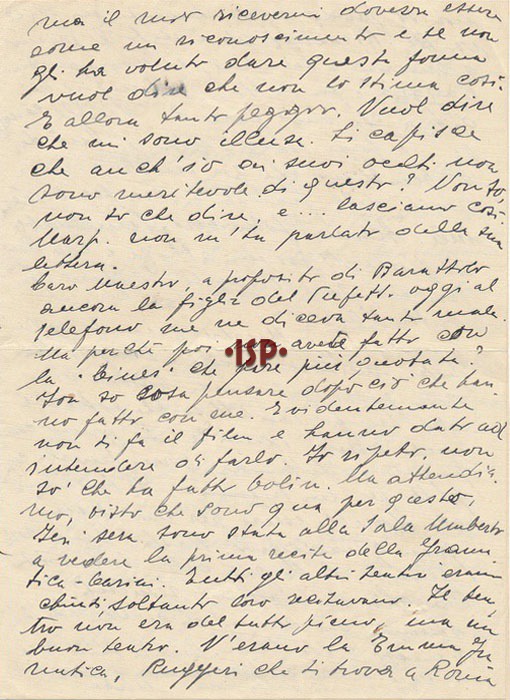 ma il non ricevermi doveva essere
come un riconoscimento e se non
gli ha voluto dare questa forma
vuol dire che non lo stima così.
E allora tanto peggio. Vuol dire
che mi sono illusa. Si capisce
che anch'io ai suoi occhi non
sono meritevole di questo? Non so,
non so che dire, e... lasciamo così.
Marp. non m'ha parlato della sua
lettera.
Caro Maestro, a proposito di Barattolo
ancora la figlia del Prefetti. oggi al
telefono me ne diceva tanto male.
Ma perchè poi avete fatto con
ISP
la "Cines" che pare più quotata?
Non so cosa pensare dopo ciò che han
no fatto con me. Evidentemente
non si fa il film e hanno dato ad
intendere di farlo. Io ripeto, non
so che ha fatto . Ma attendia
mo, visto che sono qua per questo,
Ieri sera sono stata alla Sala Umberto
a vedere la prima recita della Gramma
tica-Carini. Tutti gli altri teatri erano
chiusi soltanto loro recitavano. Il tea
tro non era del tutto pieno, ma un
buon teatro. V'erano la Emma Gra
matica, Ruggeri che si trova a Roma